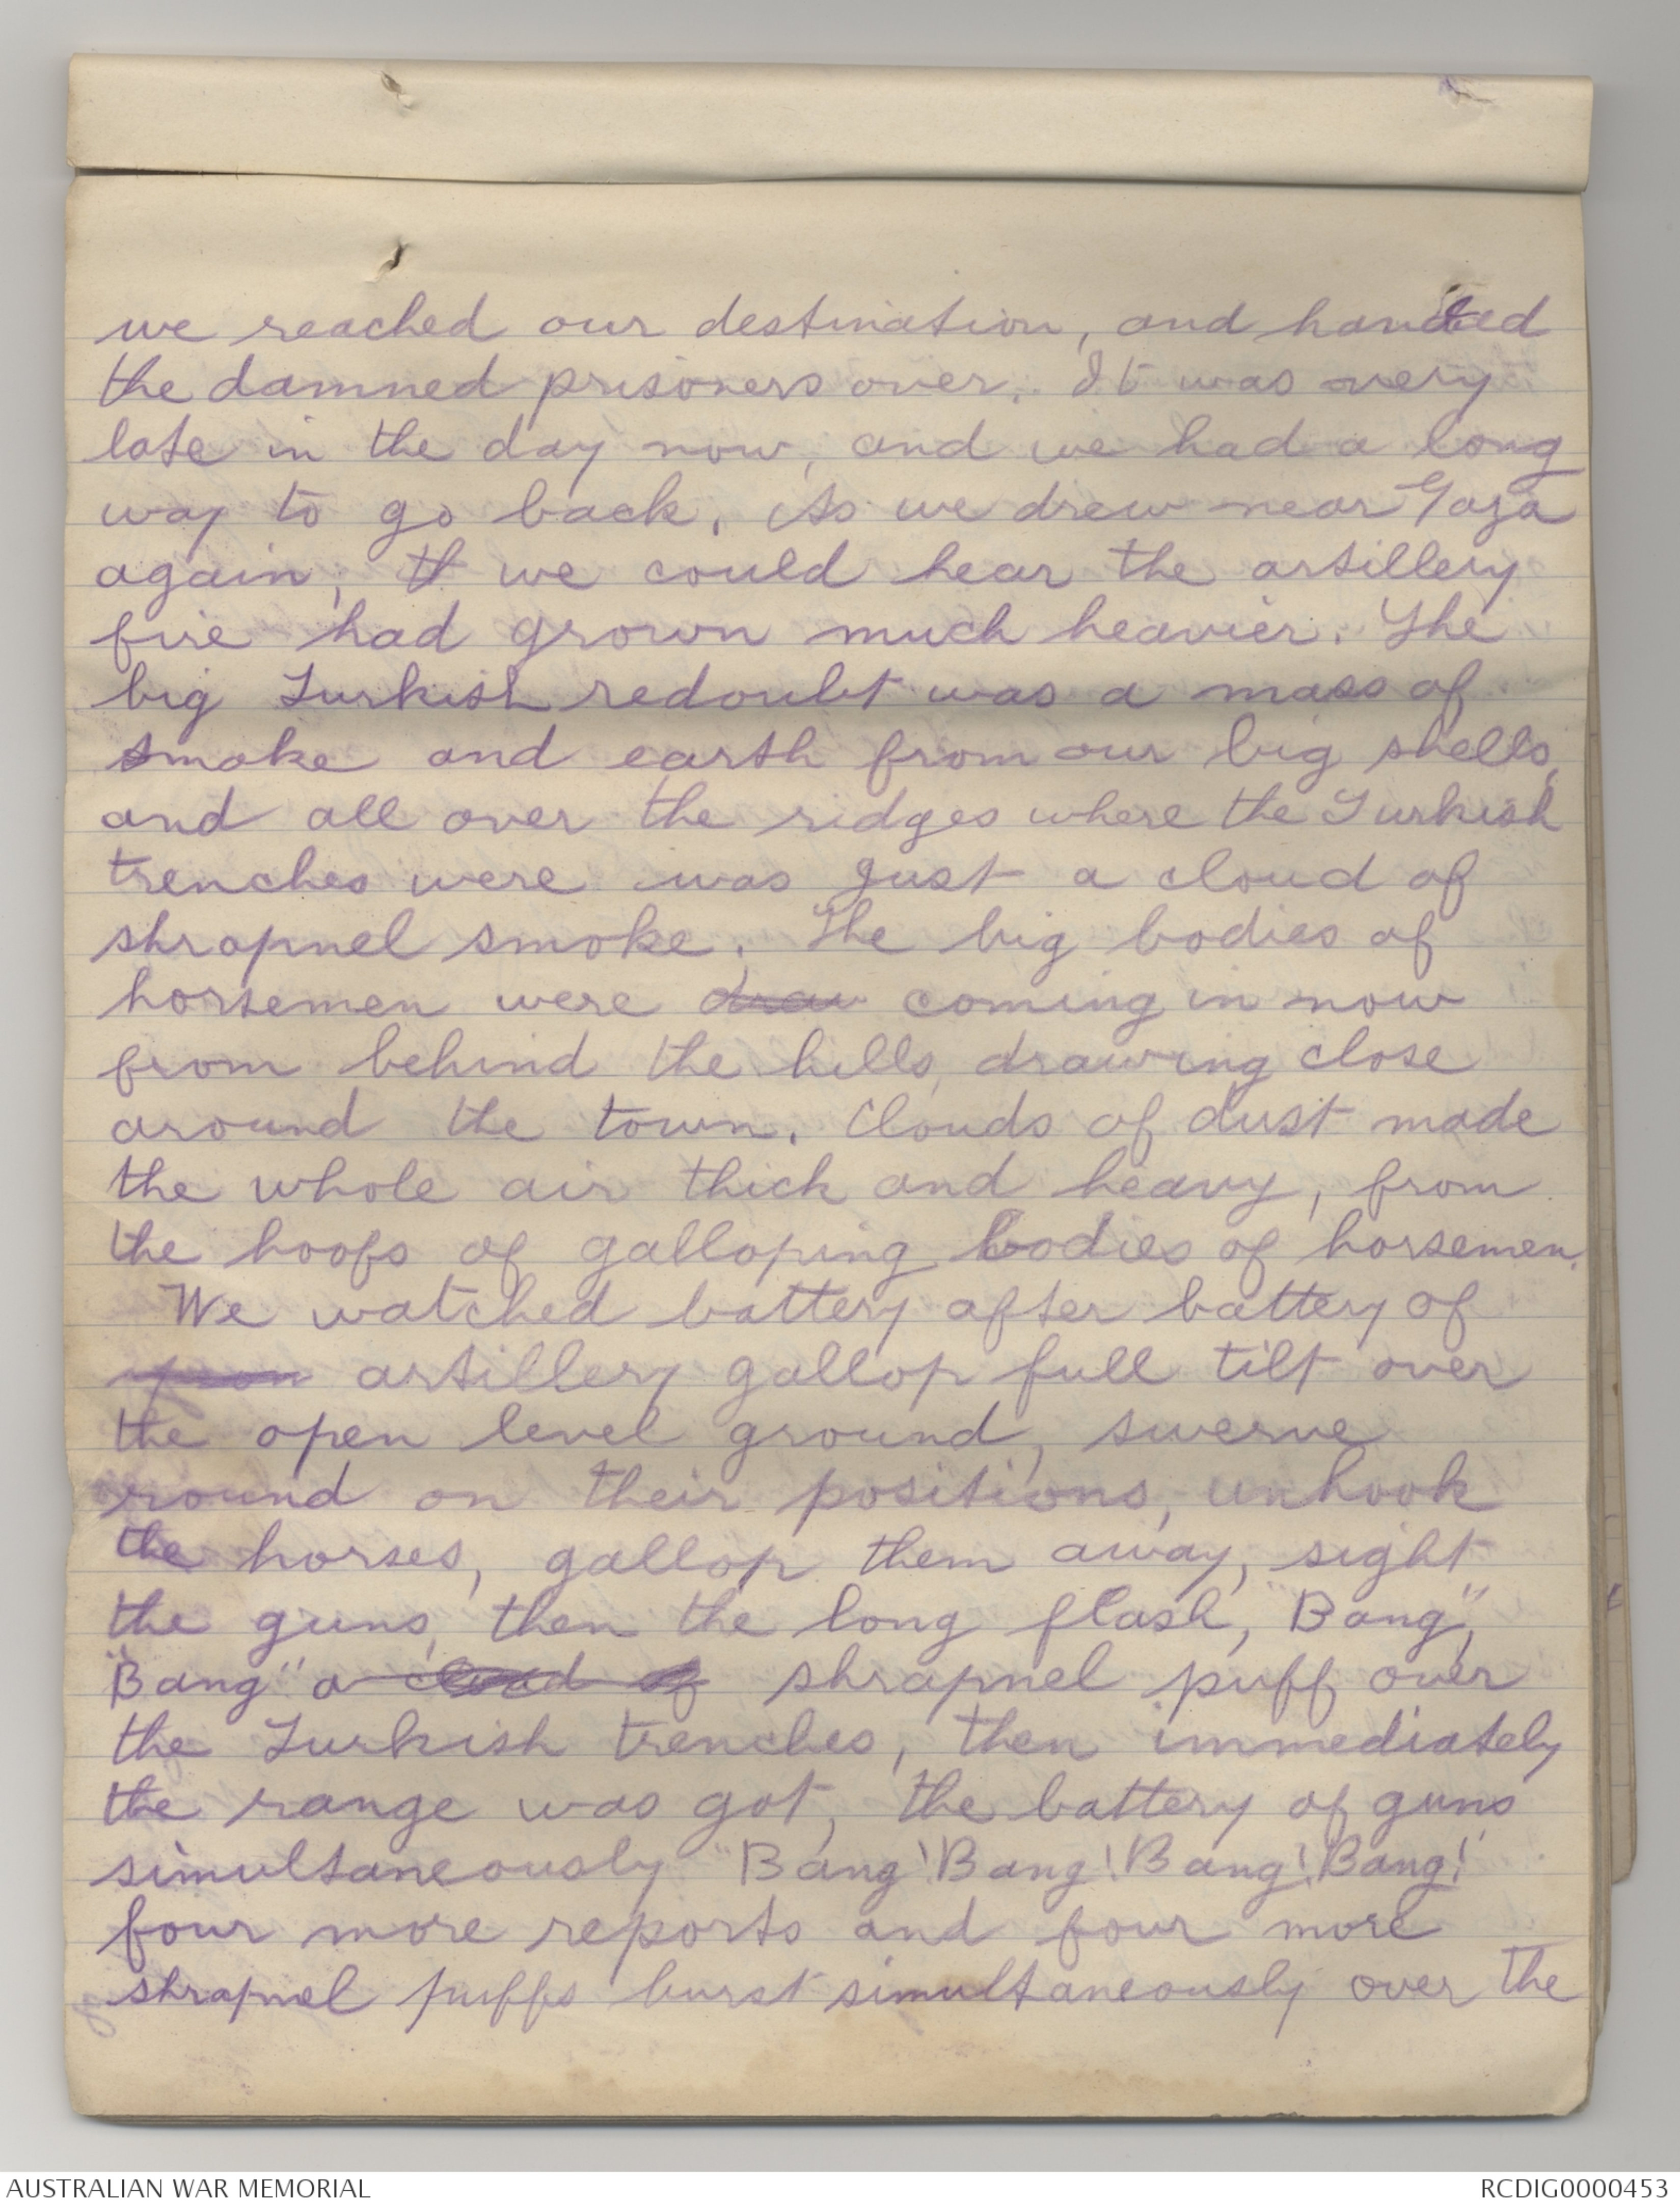 we reached our destination, and handed
the damned prisoners over. It was very
late in the day now, and we had a long
way to go back. As we drew near Gaza
again, we could hear the artillery
fire had grown much heavier. The
big Turkish redoubt was a mass of
smoke and earth from our big shells,
and all over the ridges where the Turkish
trenches were was just a cloud of
shrapnel smoke. The big bodies of
horsemen were draw coming in now
from behind the hills, drawing close
around the town. Clouds of dust made
the whole air thick and heavy, from
the hoofs of galloping bodies of horsemen.
We watched battery after battery of
artillery gallop full tilt over
the open level ground, swerve
round on their positions, unhook
the horses, gallop them away, sight
the guns, then the long flash, "Bang",
"Bang" a cloud of shrapnel puff over
the Turkish trenches, then immediately
the range was got, the battery of guns
simultaneously "Bang! Bang! Bang! Bang!"
four more reports and four more
shrapnel puffs burst simultaneously over the
AUSTRALIAN WAR MEMORIAL
RCDIG0000453